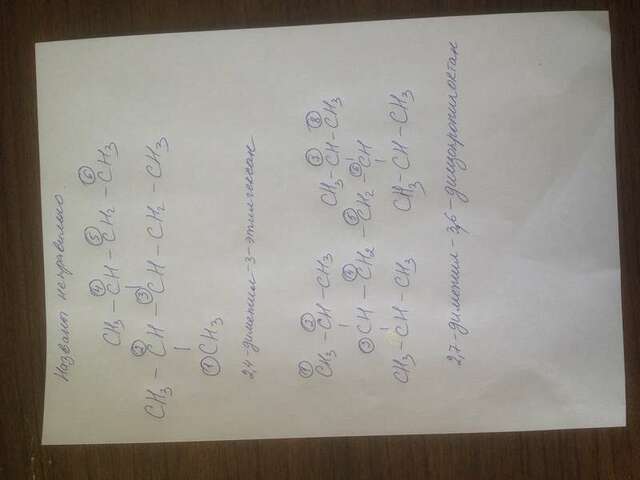 Названы неправильно.
④ ⑤ ⑥
CH₃ – CH – CH₂ – CH₃
② ③|
CH₃ – CH – CH – CH₂ – CH₃
|
①CH₃
2,4-диметил-3-этилгексан
① ② ⑦ ⑧
CH₃ – CH – CH₃ CH₃ – CH – CH₃
| ④ ⑤ ⑥|
③CH – CH₂ – CH₂ – CH
| |
CH₃ – CH – CH₃ CH₃ – CH – CH₃
2,7-диметил-3,6-диизопропилоктан